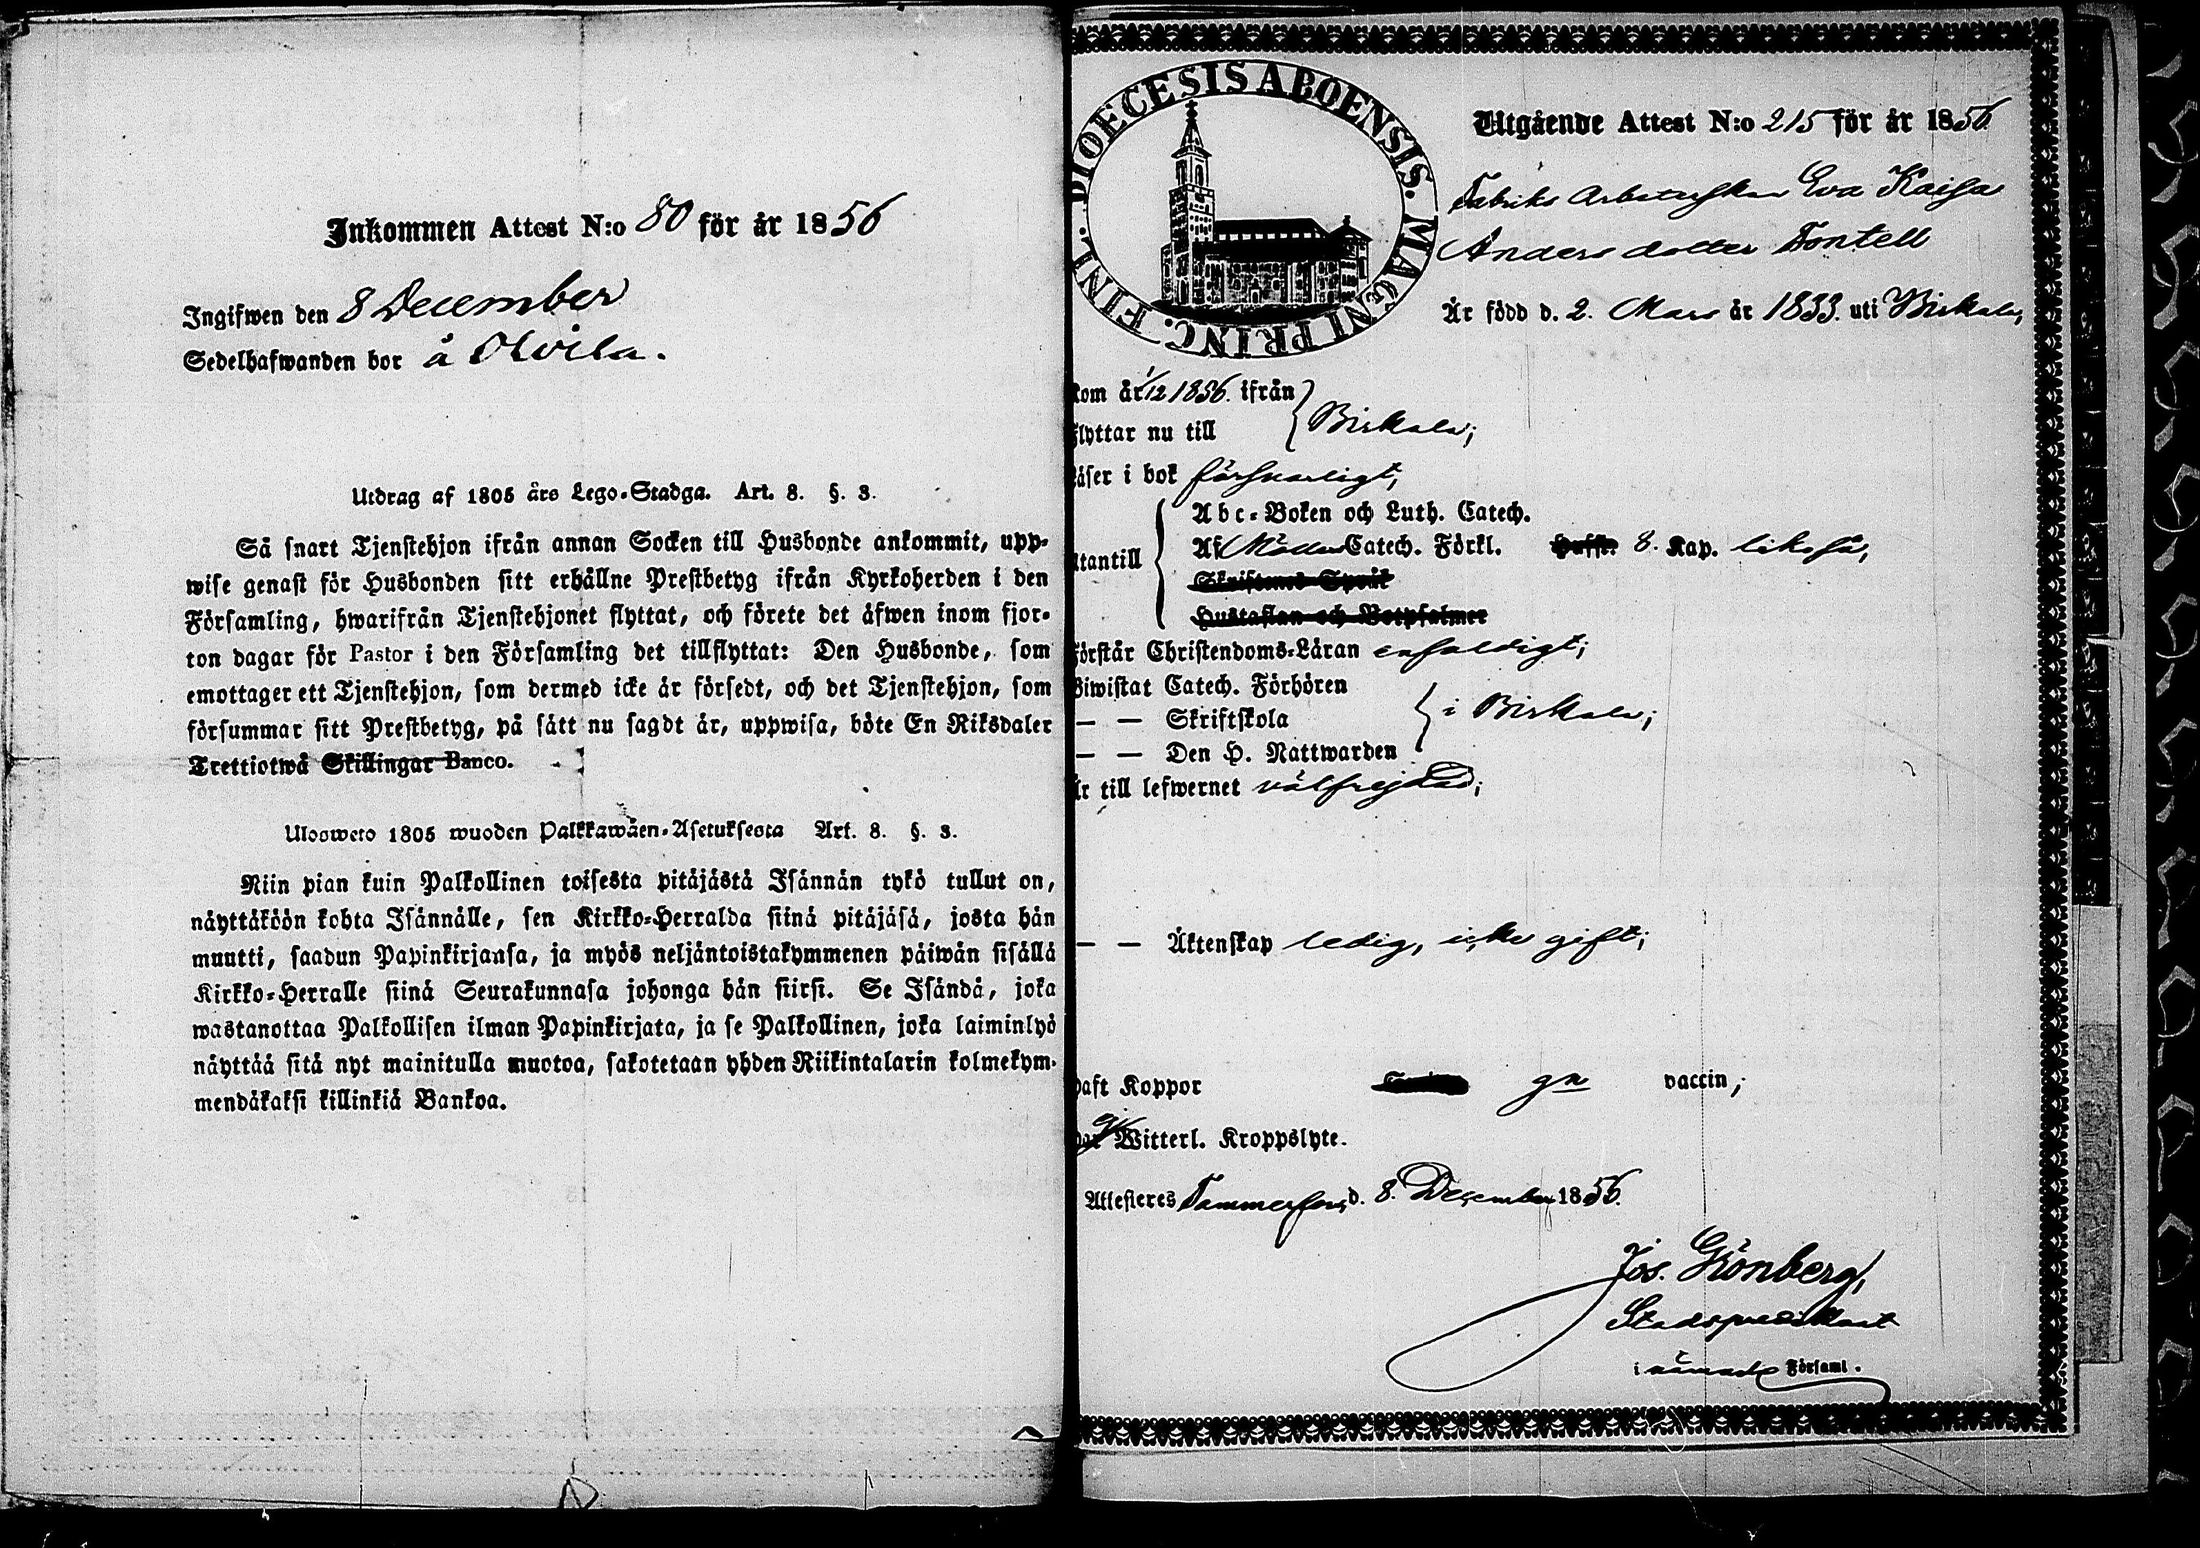 Inkommen Attest N:o 80 för år 1856
Ingifwen den 8 December
Sedelhafwanden bor å Otvila.
Utdrag af 1805 års Lego-Stadga. Art. 8. §. 3.
Så snart Tjenstehjon ifrån annan Socken till Husbonde ankommit, upp-
wise genast för Husbonden sitt erhållne Prestbetyg ifrån Kyrkoherden i den
Församling, hwarifrån Tjenstehjonet flyttat, och förete det äfwen inom fjor-
ton dagar för Pastor i den Församling det tillflyttat: Den Husbonde, som
emottager ett Tjenstehjon, som dermed icke är försedt, och det Tjenstehjon, som
försummar sitt Prestbetyg, på sätt nu sagdt är, uppwisa, böte En Riksdaler
Trettiotwå Skillingar Banco.
Ulosweto 1805 wuoden Palkkawäen-Asetuksesta Art. 8. §. 3.
Niin pian kuin Palkollinen toisesta pitäjästä Isännän tykö tullut on,
näyttäköön kohta Isännälle, sen Kirkko-Herralda siinä pitäjäsä, josta hän
muutti, saadun Papinkirjansa, ja myös neljäntoistakymmenen päiwän sisällä
Kirkko-Herralle siinä Seurakunnasa johonga hän siirsi. Se Isändä, joka
wastanottaa Palkollisen ilman Papinkirjata, ja se Palkollinen, joka laiminlyö
näyttää sitä nyt mainitulla muotoa, sakotetaan yhden Riikintalarin kolmekym-
mendäkaksi killinkiä Bankoa.
DIOECESIS ABOENSIS. MAGNI PRINC. FINL.
Utgående Attest N:o 215 för år 1856
Fabriks Arbeterskan Eva Kaisa
Anders dotter Tontell
Är född d. 2. Mars år 1833. uti Birkala,
kom år 1/12 1856. ifrån
flyttar nu till Birkala;
läser i bok försvarligt,
Abc-Boken och Luth. Catech.
utantill Af Möllers Catech. Förkl. Husst. 8. Kap. likaså,
Skriftenes Språk
Hustaflan och Botpsalmer
förstår Christendoms-Läran enfaldigt;
Biwistat Catech. Förhören
— — Skriftskola i Birkala;
— — Den H. Nattwarden
är till lefwernet välfrejdad;
— — Äktenskap ledig, icke gift;
haft Koppor gn vaccin;
Har ej Witterl. Kroppslyte.
Attesteres Tammerfors d. 8. December 1856.
Jos. Grönberg,
Stadspredikant
i nämnde Församl.